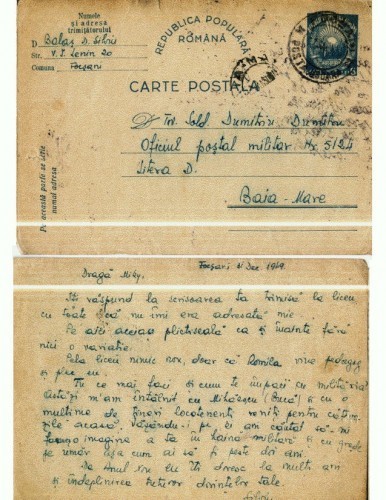 Numele
și adresa
trimițătorului
D. Balaș D. Silviu
Str. V. I. Lenin 20
Comuna Focșani
REPUBLICA POPULARĂ
ROMÂNĂ
CARTE POSTALA
Tov. Sold. Dumitriu Dumitru
Oficiul poștal militar Nr. 5124
Litera D.
Baia-Mare
Pe această parte se scrie
numai adresa
Focșani 21 Dec. 1949
Dragă Mity,
Iți răspund la scrisoarea ta trimisă la liceu,
cu toate că nu îmi era adresată mie.
Pe aici aceiași plictiseală ca și înainte fără
nici o variație.
Pela liceu nimic nou, doar că Romila vine pedagog
și
Tu ce mai faci și cum te împaci cu milităria?
Astăzi m'am întâlnit cu Mihăescu (Bucă) și cu o
mulțime de tineri locotenenți veniți pentru câteva
zile acasă, văzându-i pe ei am căutat să-mi
imagine a ta în haine militare și cu grade
pe umăr așa cum ai să fi peste doi ani.
De Anul Nou îți doresc la mulți ani
și îndeplinirea tuturor dorințelor tale.
Silviu